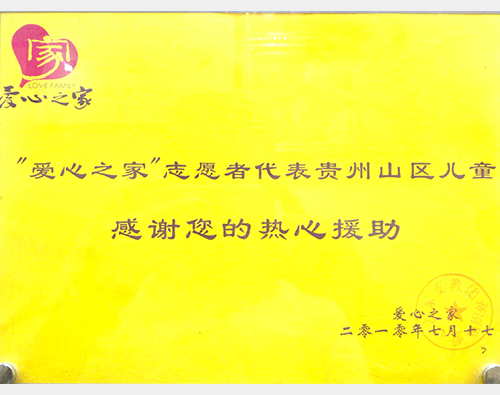 家
LOVE FAMILY
爱心之家
"爱心之家"志愿者代表贵州山区儿童
感谢您的热心援助
爱心之家
二零一零年七月十七